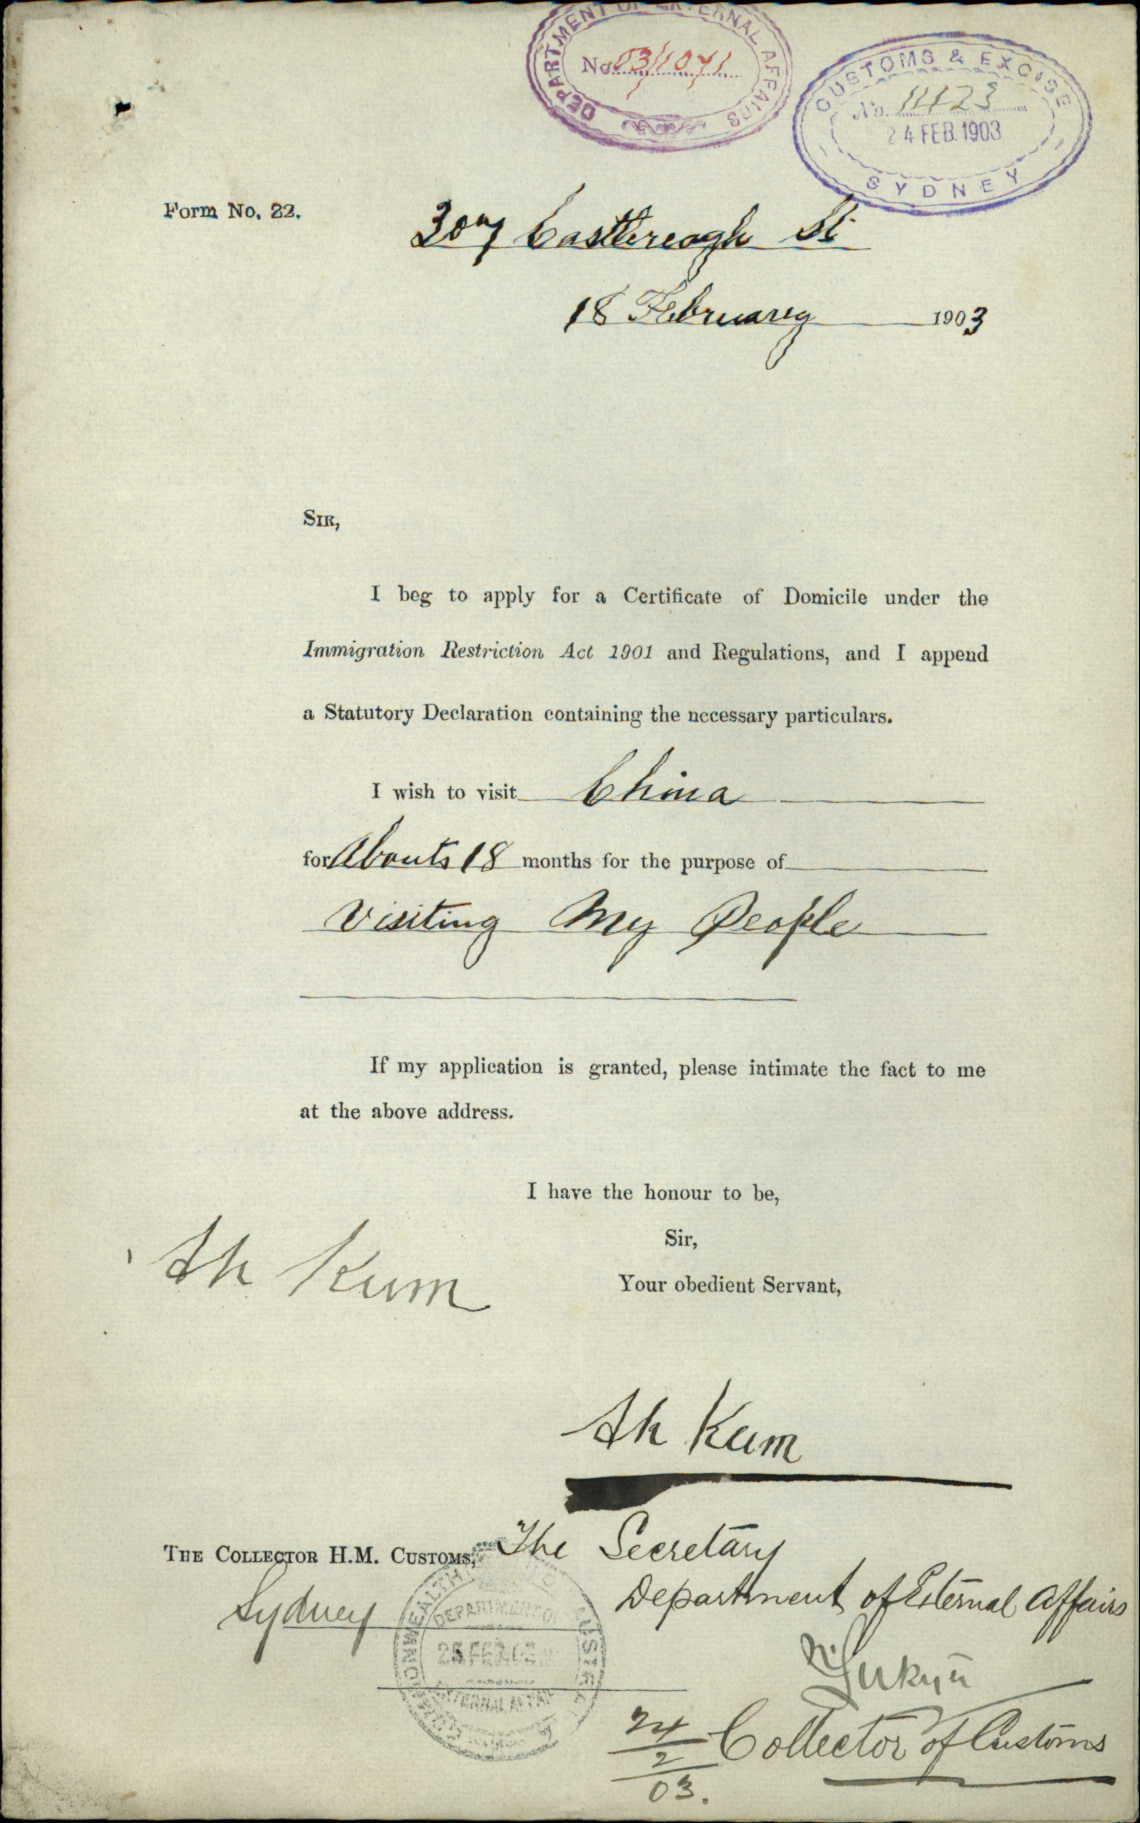 DEPARTMENT OF EXTERNAL AFFAIRS
No 03/1071
CUSTOMS & EXCISE
No. 1423
24 FEB. 1903
SYDNEY
Form No. 22.
307 Castlereagh St
18 February 1903
SIR,
I beg to apply for a Certificate of Domicile under the
Immigration Restriction Act 1901 and Regulations, and I append
a Statutory Declaration containing the necessary particulars.
I wish to visit China
for Abouts 18 months for the purpose of
Visiting My People
If my application is granted, please intimate the fact to me
at the above address.
I have the honour to be,
Sir,
Your obedient Servant,
Ah Kum
Ah Kum
THE COLLECTOR H.M. CUSTOMS,
Sydney
The Secretary
Department of External Affairs
COMMONWEALTH OF AUSTRALIA
DEPARTMENT OF
25 FEB. 03
EXTERNAL AFFAIRS
Collector of Customs
24/2/03.